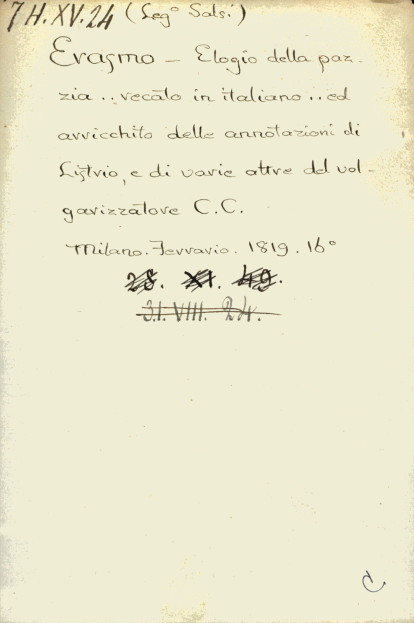 7 H.XV.24 (Leg° Salsi)
Erasmo — Elogio della paz-
zia .. recato in italiano .. ed
arricchito delle annotazioni di
Listrio, e di varie altre del vol-
garizzatore C. C.
Milano. Ferrario. 1819. 16°
28. XI. 49.
31. VIII. 24.
C